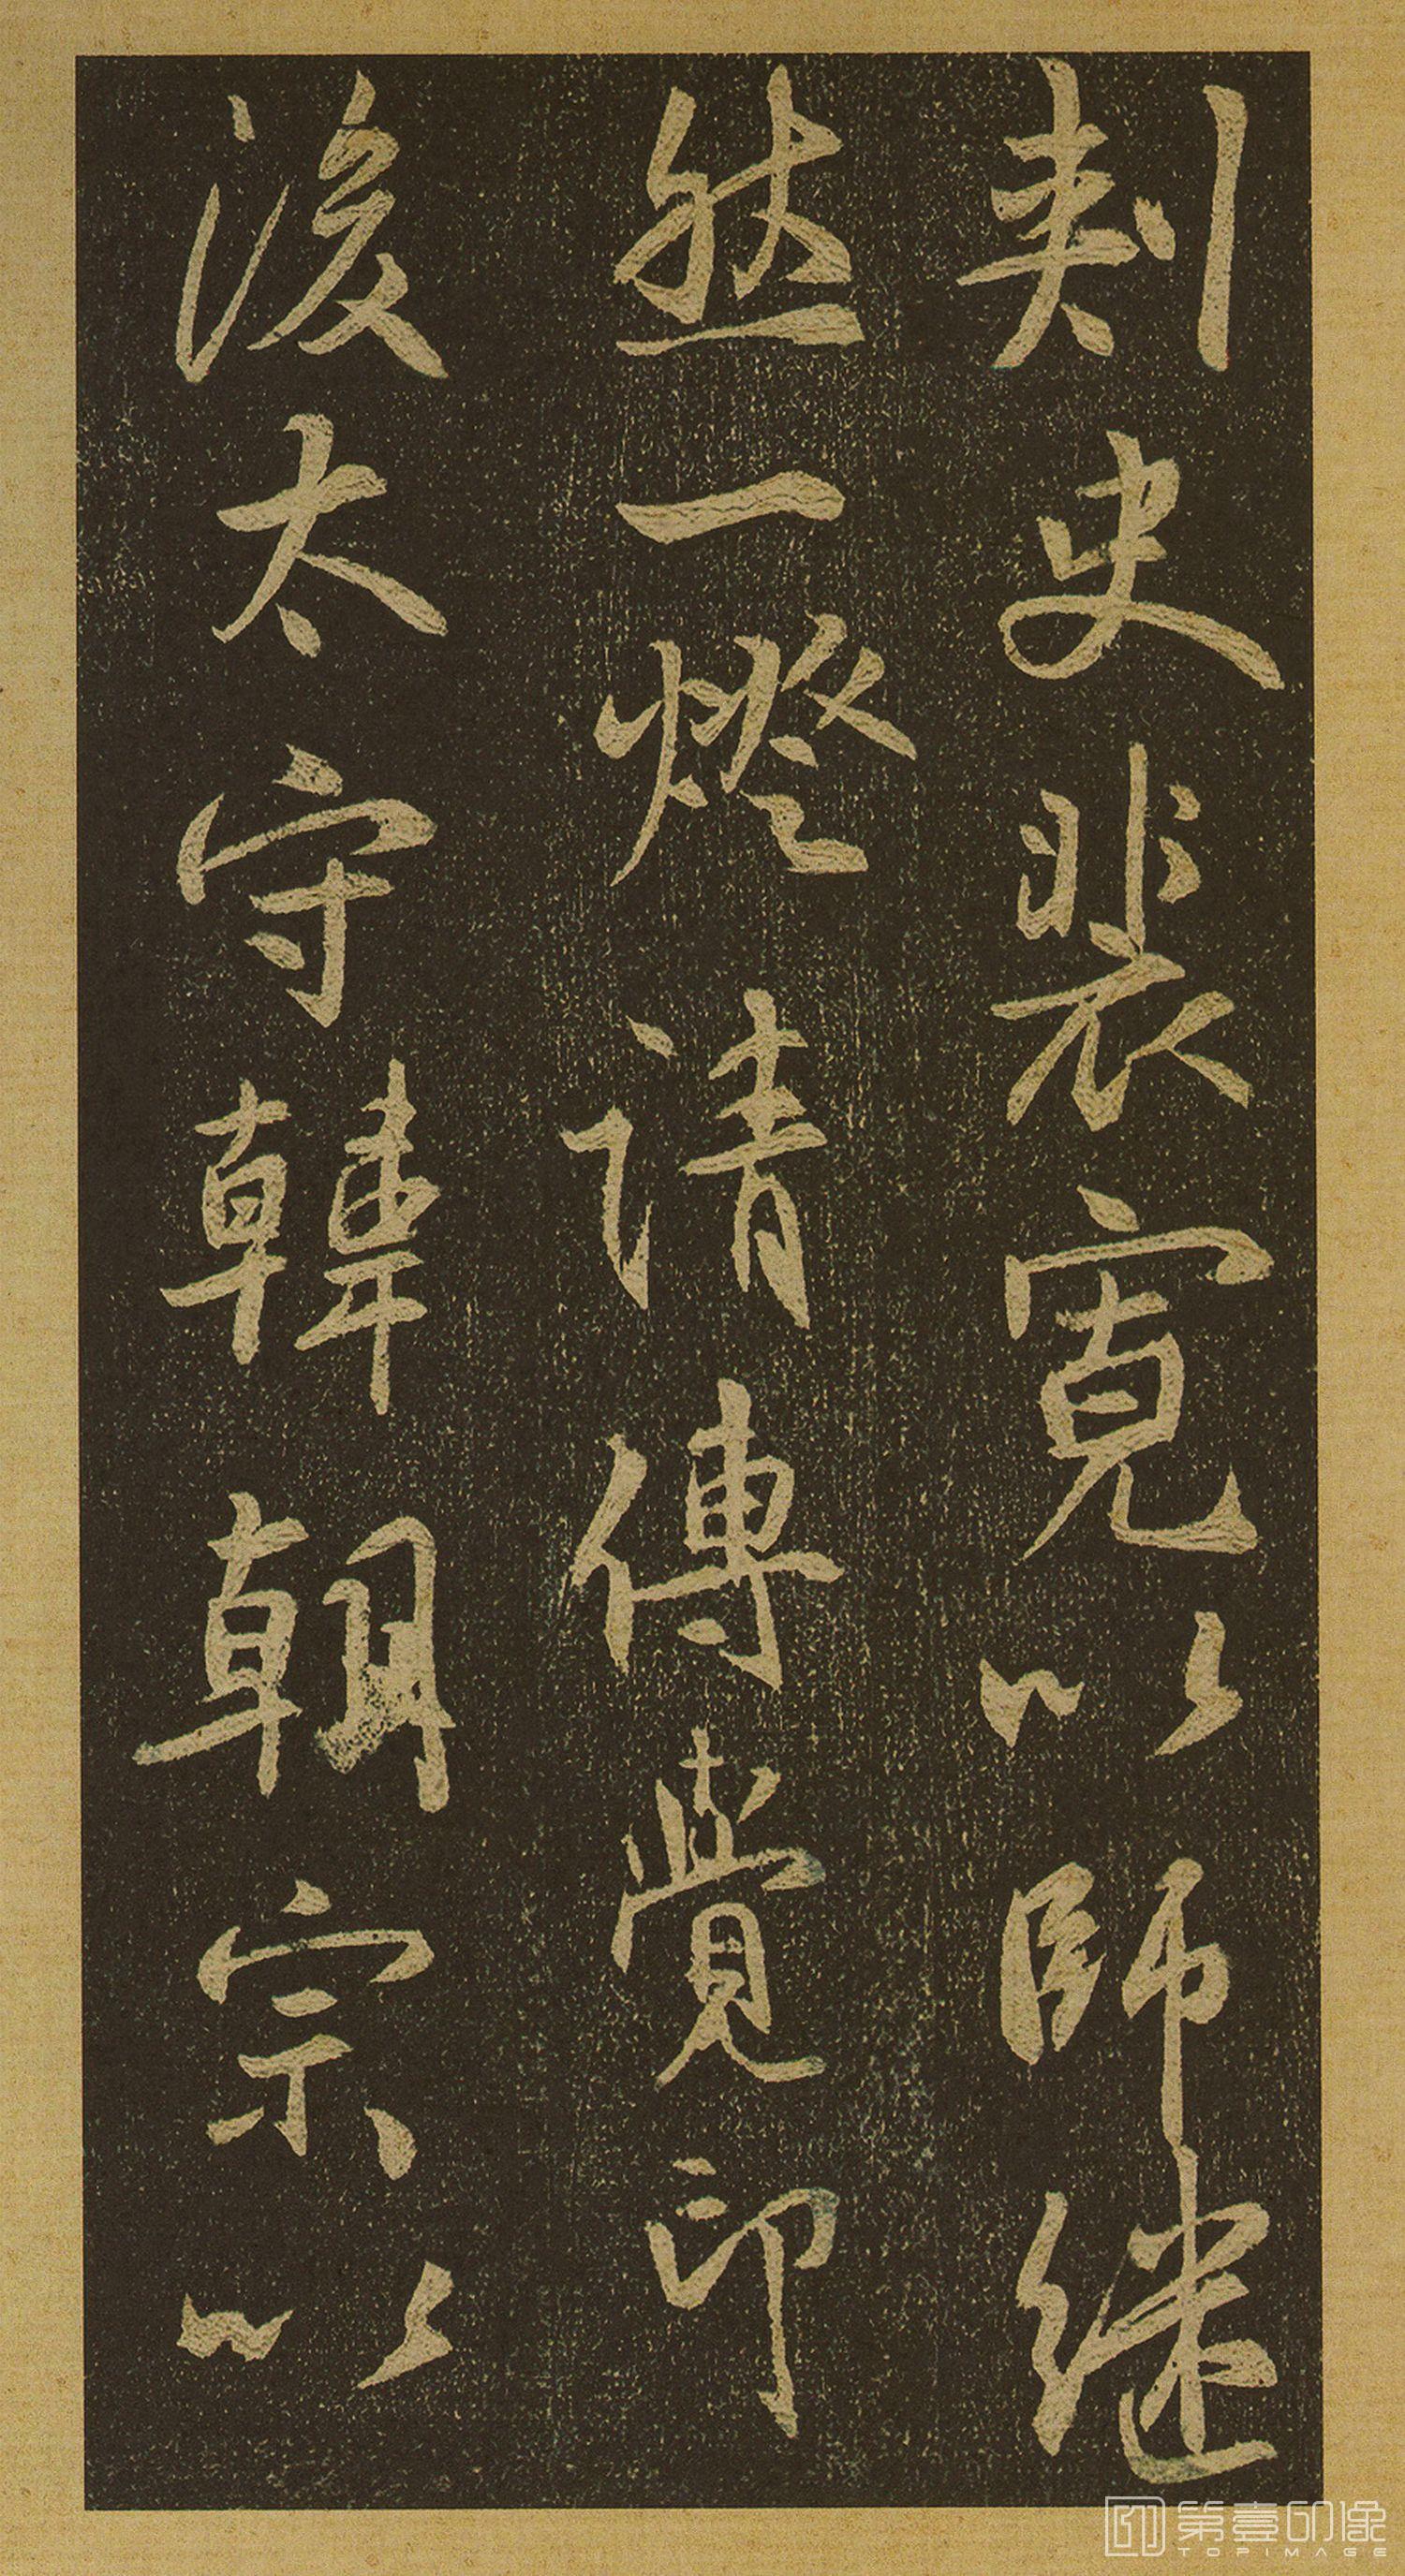 刺史裴寬以師継
然一燈請傳覺印
後太守韓朝宗以
第壹印像
TOPIMAGE